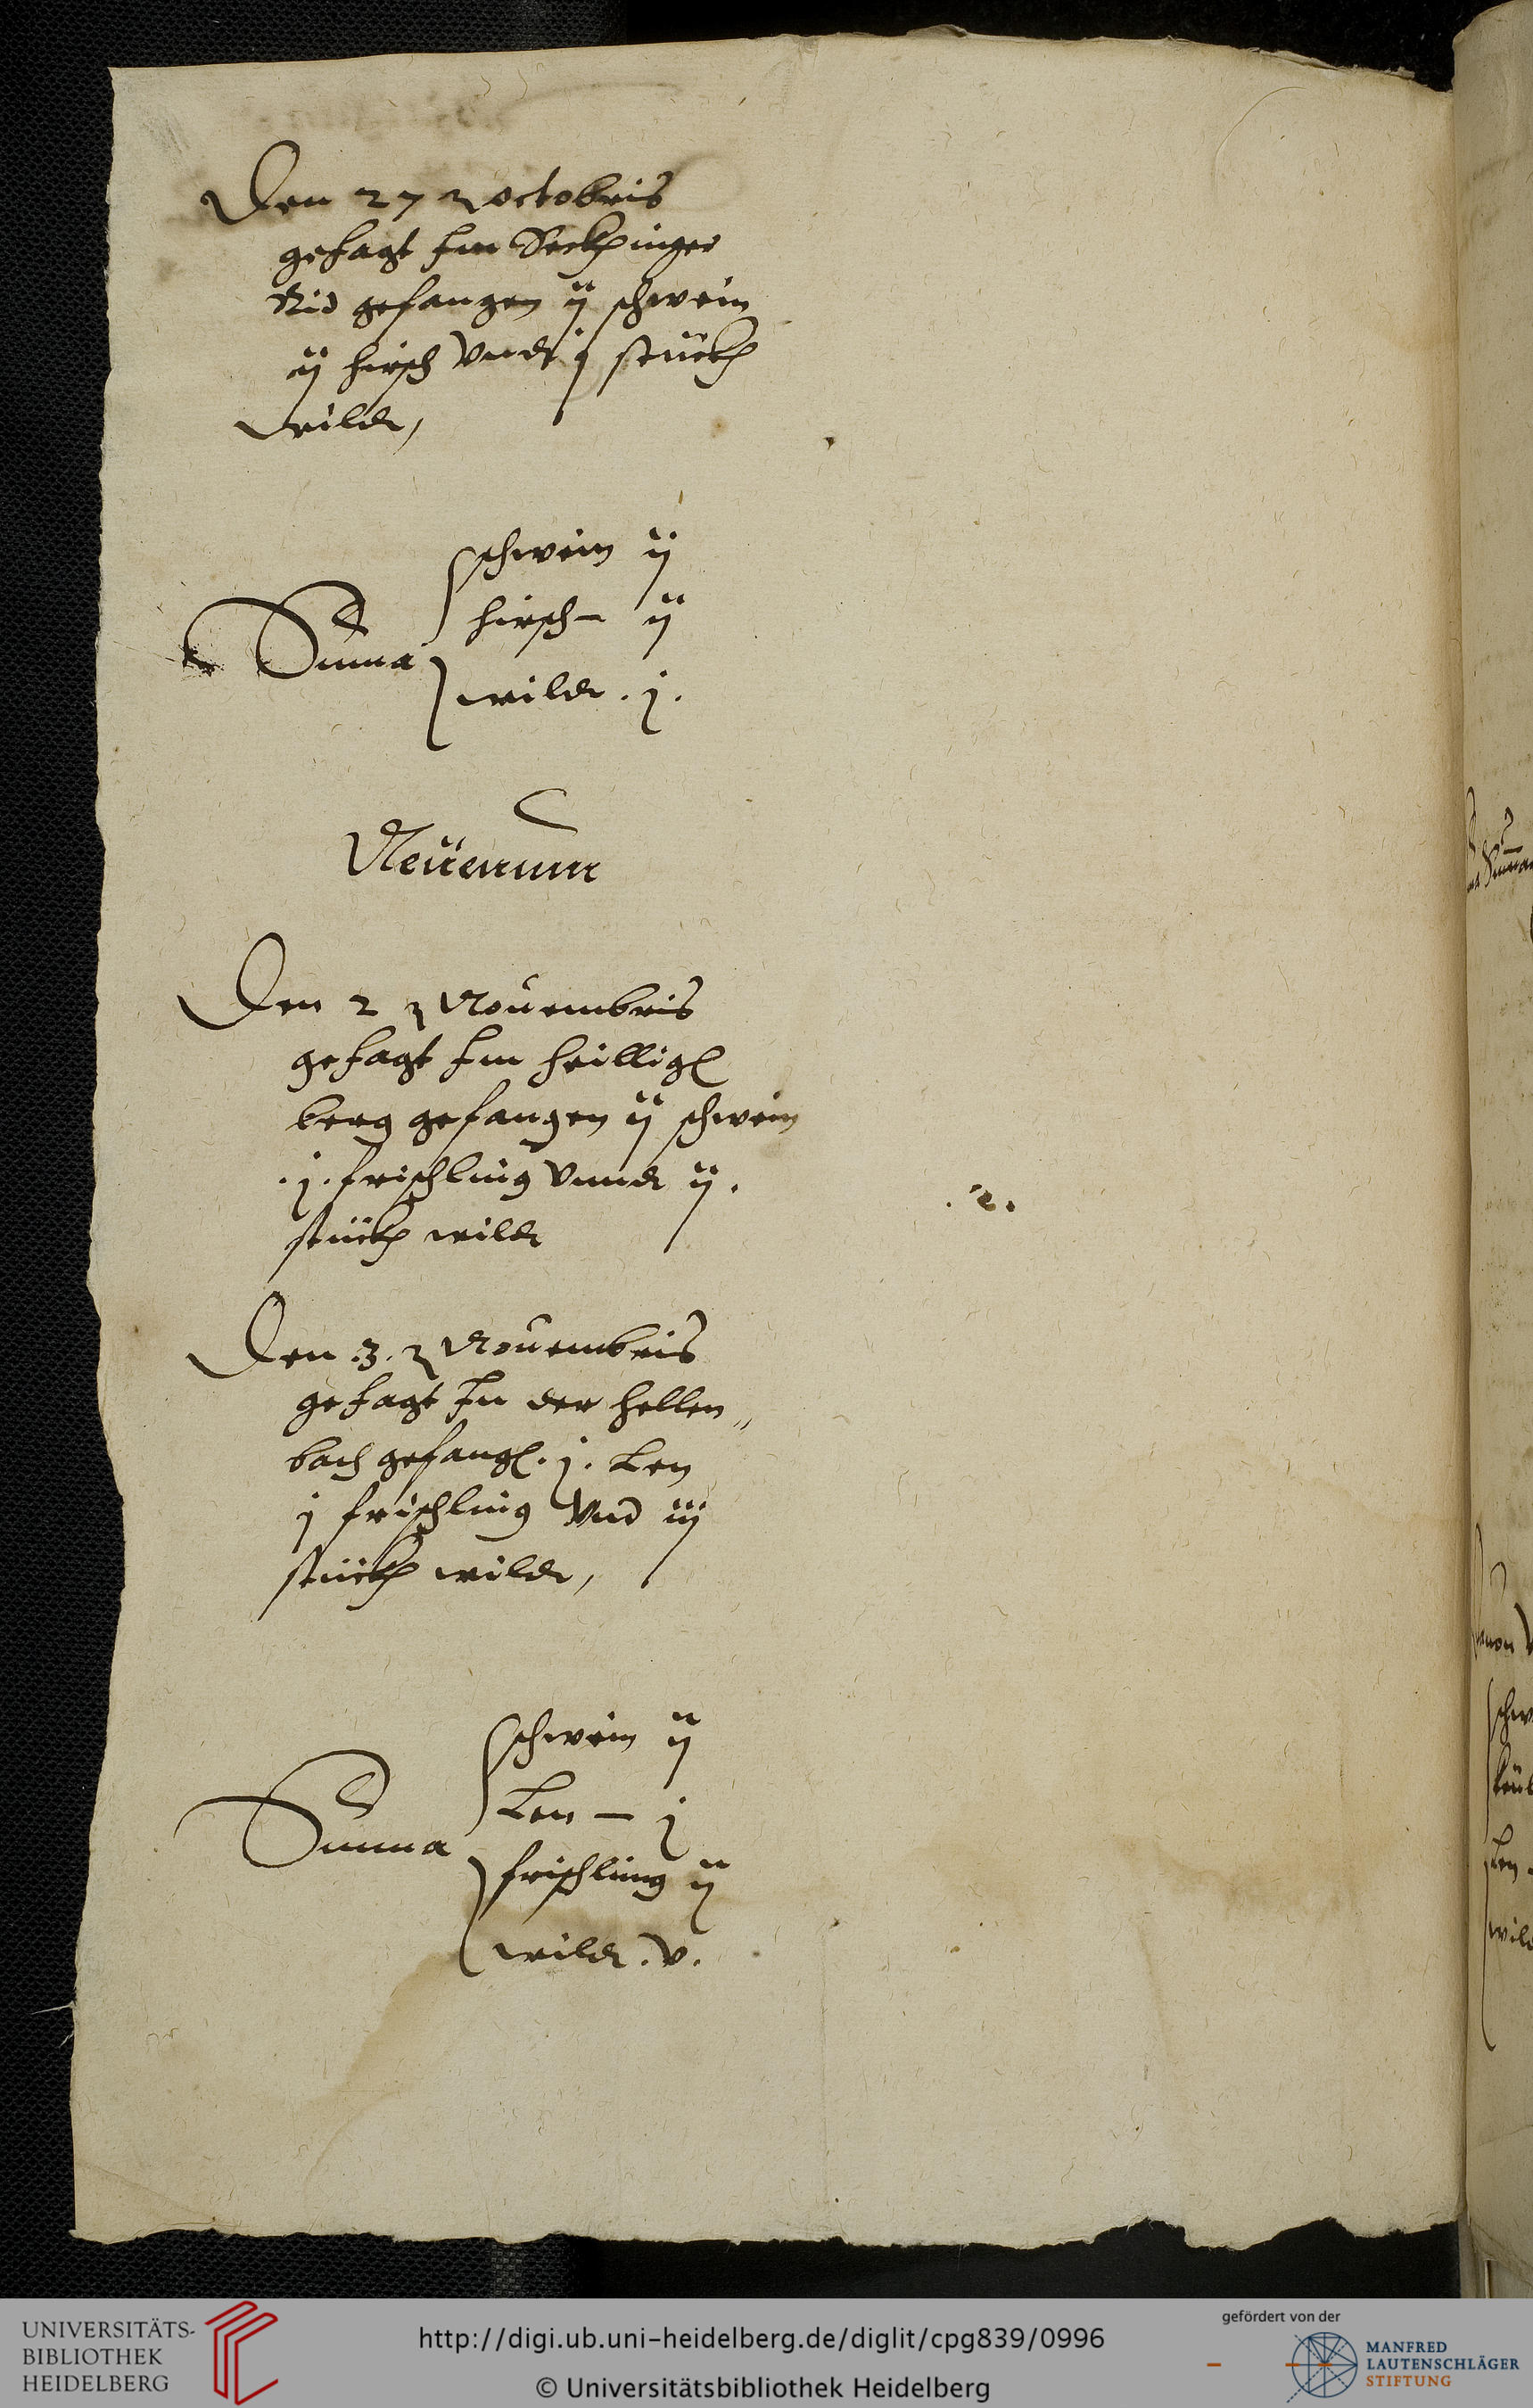 Den 27 octobris
gejagt Im Seckhinger
Rid gefangen ij schwein
ij hirsch vndt j stuckh
wildt,
schwein ij
hirsch – ij
Summa
wildt . j .
Den 2 Nouembris
gejagt Im heillig
berg gefangen ij schwein
. j . frischling vnndt ij .
stuckh wildt
. 2 .
Den . 3 . Nouembris
gejagt In der hellen„
bach gefang . j . Len
j frischling vnd iij
stuckh wildt,
schwein ij
Len – j
Summa
frischling ij
wildt . v .
UNIVERSITÄTS-
BIBLIOTHEK
HEIDELBERG
http://digi.ub.uni-heidelberg.de/diglit/cpg839/0996
© Universitätsbibliothek Heidelberg
gefördert von der
MANFRED
LAUTENSCHLÄGER
STIFTUNG